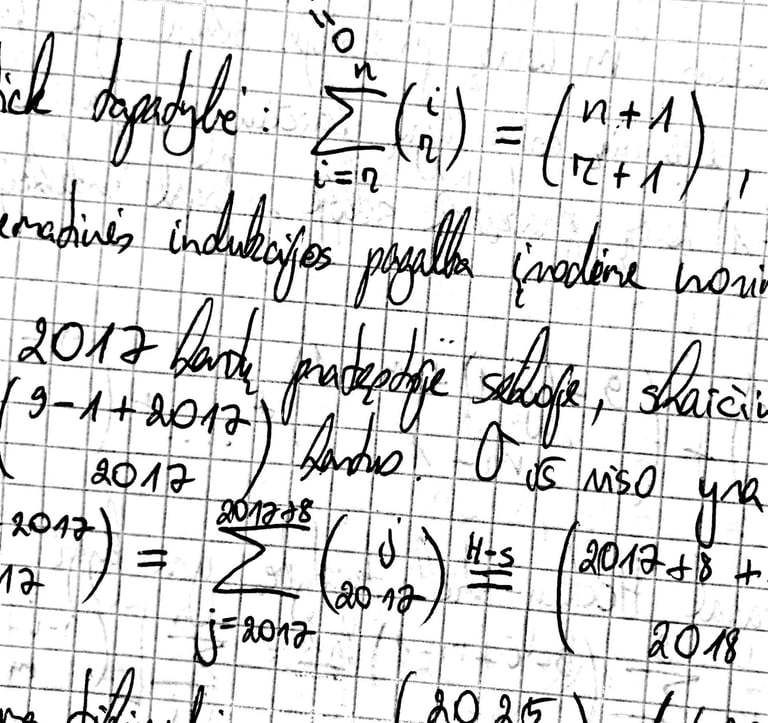 "0
ick tapatybė: \sum_{i=r}^{n} \binom{i}{r} = \binom{n+1}{r+1},
ematinės indukcijos pagalba įrodėme norim
2017 kartų pradžioje sekoje, skaičiu
\binom{9-1+2017}{2017} kartus. O iš viso yra
2017 17) = \sum_{j=2017}^{2017+8} \binom{j}{2017} \overset{H-s}{=} (2017+8+ 2018
(2025)